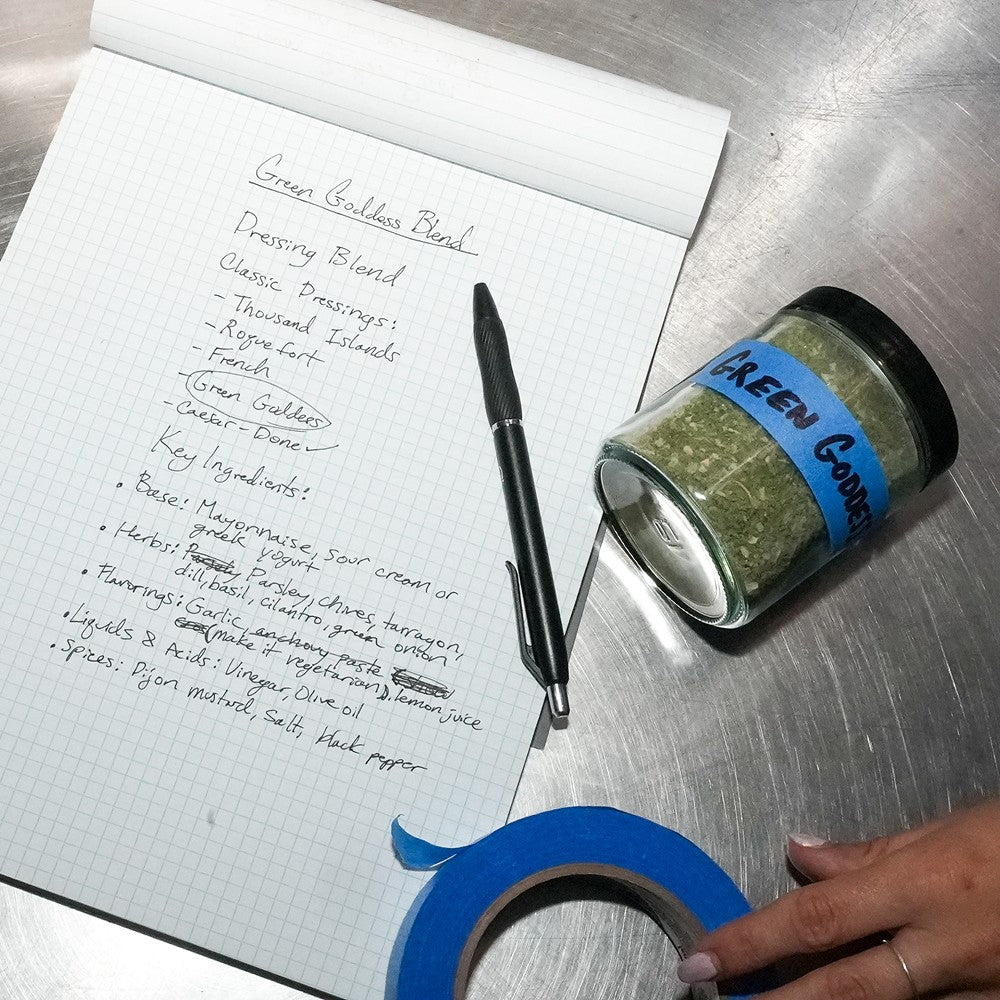 Green Goddess Blend
Dressing Blend
Classic Dressings:
- Thousand Islands
- Roquefort
- French
- Green Goddess
- Caesar - Done ✓
Key Ingredients:
• Base: Mayonnaise, sour cream or
greek yogurt
• Herbs: Parsley, chives, tarragon,
dill, basil, cilantro, green onion
• Flavorings: Garlic, anchovy paste
(make it vegetarian), lemon juice
• Liquids & Acids: Vinegar, Olive oil
• Spices: Dijon mustard, Salt, black pepper
GREEN GODDESS